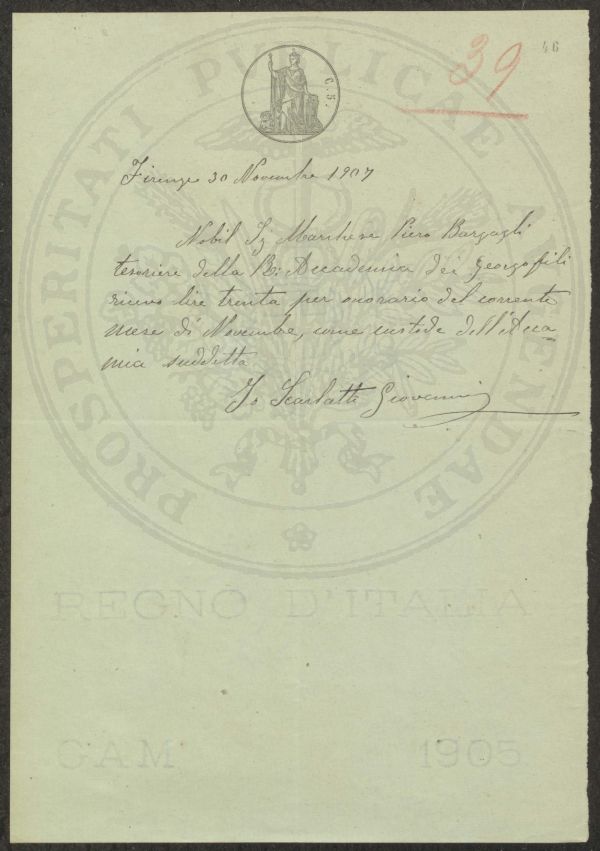 39
46
C. 5.
PROSPERITATI PVBLICAE AVGENDAE
Firenze 30 Novembre 1907
Nobil Sig Marchese Piero Bargagli
tesoriere della R: Accademia dei Georgofili
ricevo lire trenta per onorario del corrente
mese di Novembre, come custode dell'Acca
mia suddetta
Io Scarlatti Giovanni
REGNO D'ITALIA
GAM 1905